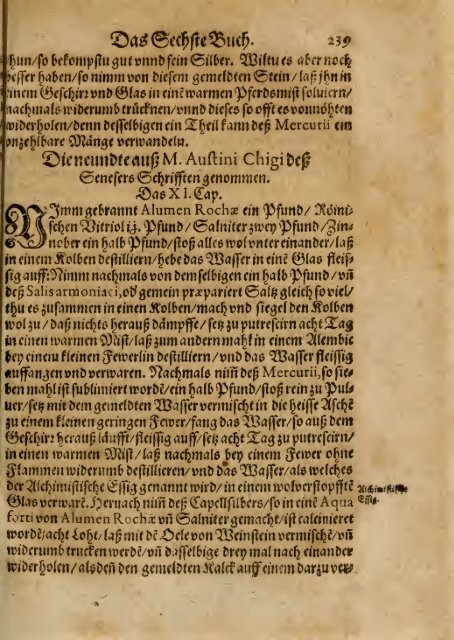 Das Sechste Buch. 239
thun/so bekompstu gut vnnd fein Silber. Wiltu es aber noch
besser haben/so nimm von diesem gemeldten Stein/laß jhn in
einem Geschirr vnd Glas in eine warmen Pferdsmist soluiern/
nachmals widerumb trücknen/vnnd dieses so offt es vonnöhten
widerholen/denn desselbigen ein Theil kann deß Mercurii ein
onzehlbare Mänge verwandeln.
Die neundte auß M. Austini Chigi deß
Senesers Schrifften genommen.
Das XI. Cap.
NImm gebrannt Alumen Rochæ ein Pfund/Römi-
schen Vitriol ij. Pfund/Salniter zwey Pfund/Zin-
nober ein halb Pfund/stoß alles wol vnter einander/laß
in einem Kolben destillirn/hebe das Wasser in eine Glas fleis-
sig auff: Nimm nachmals von demselbigen ein halb Pfund/vñ
deß Salis armoniaci, od gemein præpariert Saltz gleich so viel/
thu es zusammen in einen Kolben/mach vnd siegel den Kolben
wol zu/daß nichts herauß dämpffe/setz zu putreficirn acht Tag
in einen warmen Mist/laß zum andern mahl in einem Alembic
bey einem kleinen Fewerlin destilliern/vnd das Wasser fleissig
auffangen vnd verwaren. Nachmals niñ deß Mercurii, so sie-
ben mahl ist sublimiert wordē/ein halb Pfund/stoß rein zu Pul-
uer/setz mit dem gemeldten Wasser vermischt in die heisse Aschē
zu einem kleinen geringen Fewer/fang das Wasser/so auß dem
Geschirr herauß läufft/fleissig auff/setz acht Tag zu putreficirn/
in einen warmen Mist/laß nachmals bey einem Fewer ohne
Flammen widerumb destillieren/vnd das Wasser/als welches
der Alchimistische Essig genannt wird/in einem wolverstopfftē
Glas verwarē. Hernach niñ deß Capellsilbers/so in einē Aqua
forti von Alumen Rochæ vñ Salniter gemacht/ist calciniert
wordē/acht Loht/laß mit dē Oele von Weinstein vermischē/vñ
widerumb trucken werdē/vñ dasselbige drey mal nach einander
widerholen/als deñ den gemeldten Kalck auff einem darzu ver-
Alchimistische
Essig.